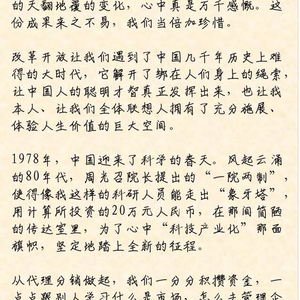 的天翻地覆的变化，心中真是万千感慨。这
份成果来之不易，我们当倍加珍惜。
改革开放让我们遇到了中国几千年历史上难
得的大时代，它解开了绑在人们身上的绳索，
让中国人的聪明才智真正发挥出来，也让我
本人、让我们全体联想人拥有了充分施展、
体验人生价值的巨大空间。
1978年，中国迎来了科学的春天。风起云涌
的80年代，周光召院长提出的“一院两制”，
使得像我这样的科研人员能走出“象牙塔”，
用计算所投资的20万元人民币，在那间简陋
的传达室里，为了心中“科技产业化”那面
旗帜，坚定地踏上全新的征程。
从代理分销做起，我们一分分积攒资金，一
点点跟别人学习什么是市场，怎么去管理企